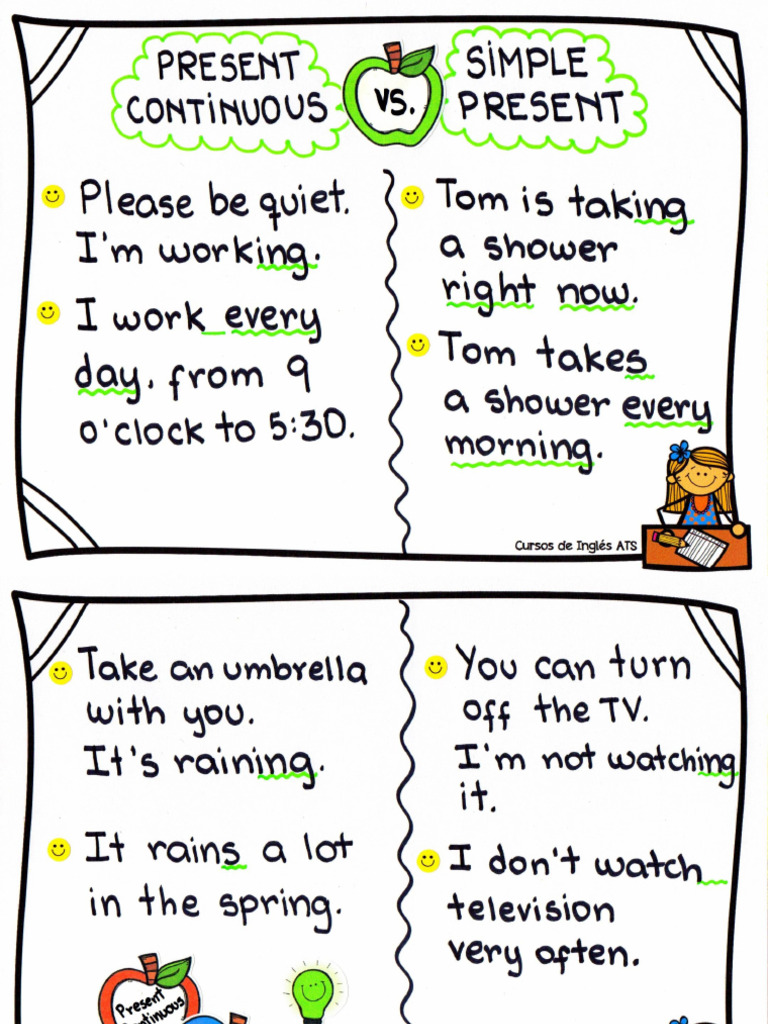 PRESENT CONTINUOUS
VS.
SIMPLE PRESENT
Please be quiet.
I'm working.
I work every
day. from 9
o'clock to 5:30.
Tom is taking
a shower
right now.
Tom takes
a shower every
morning.
Cursos de Inglés ATS
Take an umbrella
with you.
It's raining.
It rains a lot
in the spring.
You can turn
off the TV.
I'm not watching
it.
I don't watch
television
very often.
Present
Continuous